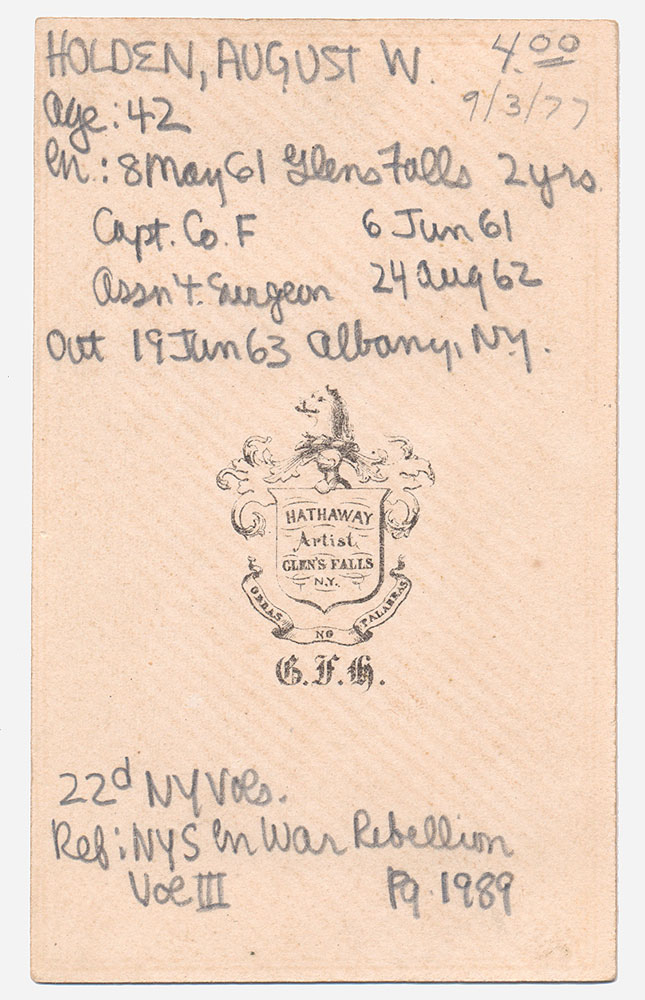 HOLDEN, AUGUST W.
4.00
9/3/77
Age: 42
En.: 8 May 61 Glens Falls 2 yrs.
Capt. Co. F 6 Jun 61
Assn't. Surgeon 24 Aug 62
Out 19 Jun 63 Albany, N.Y.
HATHAWAY
Artist,
GLEN'S FALLS
N.Y.
OBRAS NO PALABRAS
G.F.H.
22d NY Vols.
Ref: NYS in War Rebellion
Vol III Pg. 1989